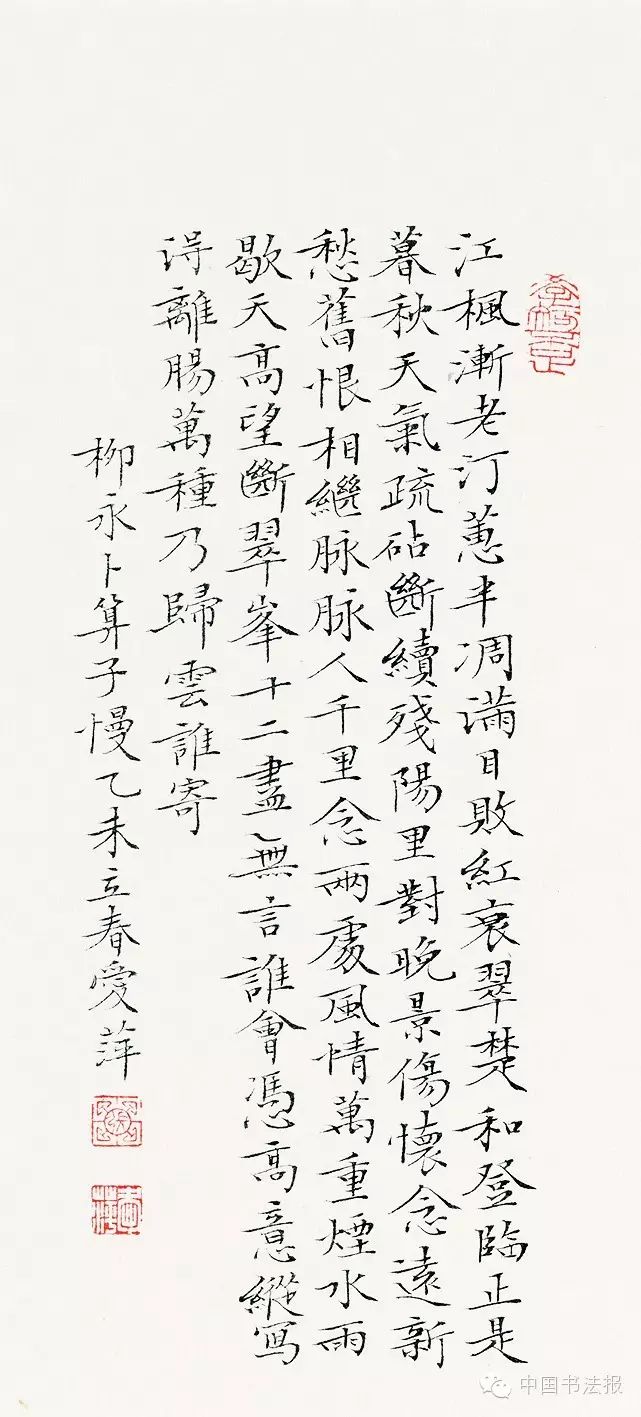 江楓漸老汀蕙半凋滿目敗紅衰翠楚和登臨正是
暮秋天氣疏砧斷續殘陽里對晚景傷懷念遠新
愁舊恨相繼脉脉人千里念兩處風情萬重煙水雨
歇天高望斷翠峯十二盡無言誰會憑高意縱写
得離腸萬種乃歸雲誰寄
柳永卜算子慢乙未立春愛萍
中国书法报